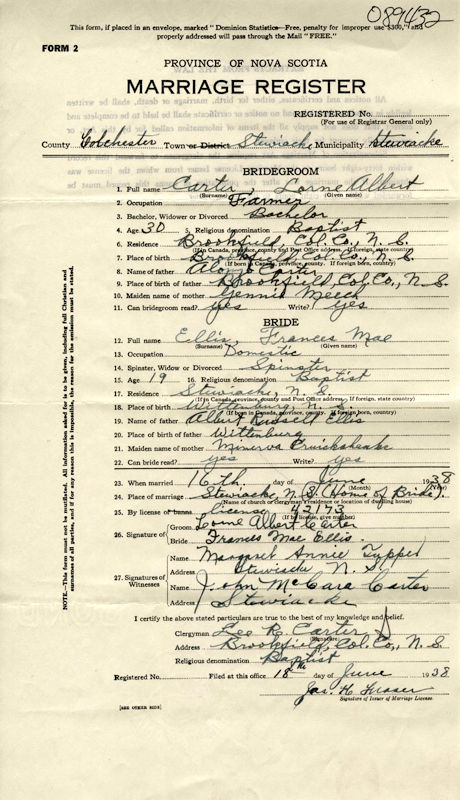 089432
This form, if placed in an envelope, marked "Dominion Statistics—Free, penalty for improper use $300," and
properly addressed will pass through the Mail "FREE."
FORM 2
PROVINCE OF NOVA SCOTIA
MARRIAGE REGISTER
REGISTERED No.
(For use of Registrar General only)
County Colchester Town or District Stewiacke Municipality Stewiacke
BRIDEGROOM
1. Full name Carter, Lorne Albert
(Surname) (Given name)
2. Occupation Farmer
3. Bachelor, Widower or Divorced Bachelor
4. Age 30 5. Religious denomination Baptist
6. Residence Brookfield, Col. Co., N. S.
(If in Canada, province, county and Post Office address. If foreign, state country)
7. Place of birth Brookfield, Col. Co., N. S.
(If born in Canada, province, county. If foreign born, country)
8. Name of father Alonzo Carter
9. Place of birth of father Brookfield, Col. Co., N. S.
10. Maiden name of mother Jennie Meech
11. Can bridegroom read? yes Write? yes
BRIDE
12. Full name Ellis, Frances Mae
(Surname) (Given name)
13. Occupation Domestic
14. Spinster, Widow or Divorced Spinster
15. Age 19 16. Religious denomination Baptist
17. Residence Stewiacke, N. S.
(If in Canada, province, county and Post Office address. If foreign, state country)
18. Place of birth Wittenburg, N. S.
(If born in Canada, province, county. If foreign born, country)
19. Name of father Albert Russell Ellis
20. Place of birth of father Wittenburg
21. Maiden name of mother Minerva Cruikshanks
22. Can bride read? yes Write? yes
23. When married 16th day of June 1938
(Month) (Year)
24. Place of marriage Stewiacke, N. S. (Home of Bride).
(Name of church or clergyman's residence or location of dwelling house)
25. By license or banns license 42173
(If by license, give number)
26. Signature of
Groom Lorne Albert Carter
Bride Frances Mae Ellis.
27. Signatures of Witnesses
Name Margaret Annie Tupper
Address Stewiacke N. S.
Name John McCara Carter
Address Stewiacke
I certify the above stated particulars are true to the best of my knowledge and belief.
Clergyman Lee R. Carter
(Signature)
Address Brookfield, Col. Co., N. S.
Religious denomination Baptist
Registered No. Filed at this office 18th day of June 1938
Jas. H. Fraser
Signature of Issuer of Marriage License
[SEE OTHER SIDE]
NOTE.—This form must not be mutilated. All information asked for is to be given, including full Christian and
surnames of all parties, and if for any reason this is impossible, the reason for the omission must be stated.